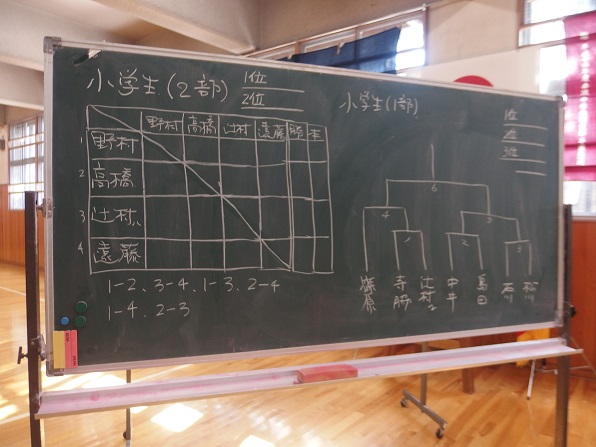 小学生(2部)
1位
2位
野村 高橋 辻村 遠藤 勝
1 野村
2 高橋
3 辻村
4 遠藤
1-2、3-4、1-3、2-4
1-4、2-3
小学生(1部)
1位
2位
3位
6
4 5
1 2 3
藤原 寺勝 辻村 中井 島田 石川 松川